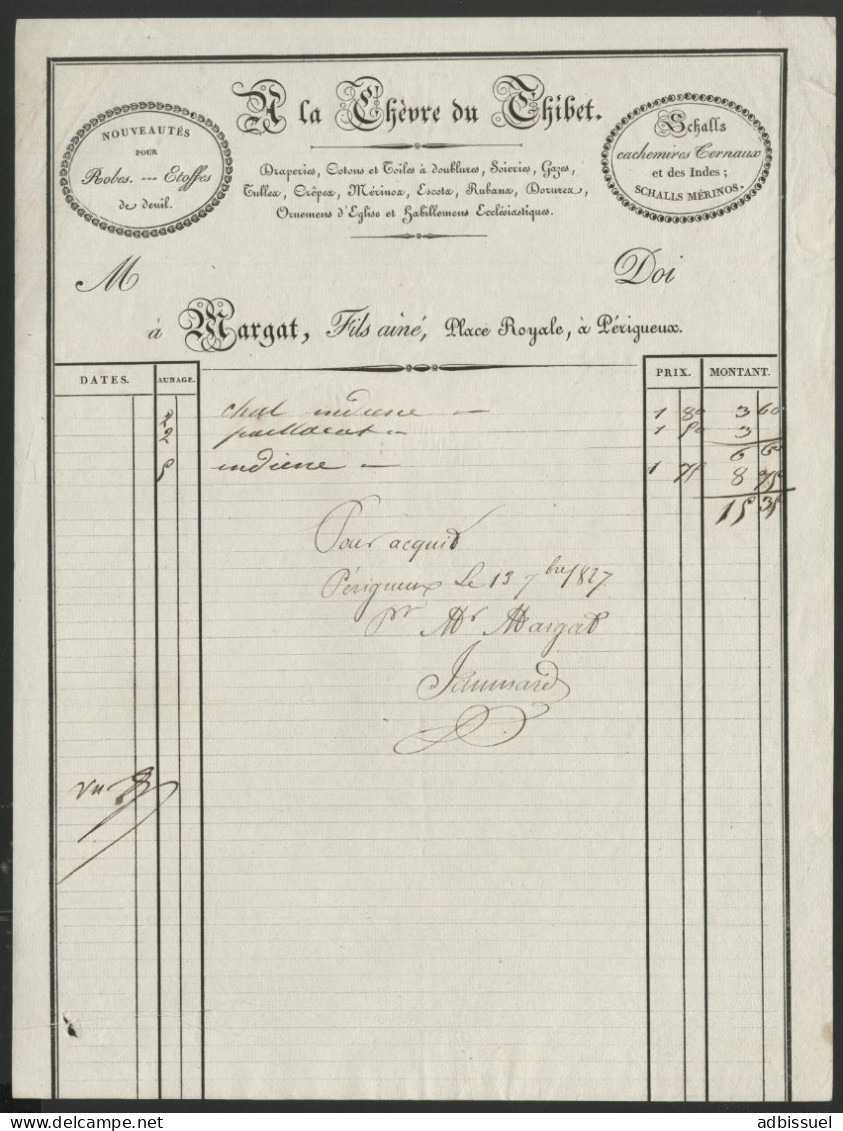 A la Chèvre du Thibet.
NOUVEAUTÉS
POUR
Robes. --- Etoffes
de deuil.
Draperies, Cotons et Toiles à doublures, Soieries, Gazes,
Tulles, Crêpes, Mérinos, Escots, Rubans, Dorures,
Ornemens d'Eglise et Habillemens Ecclésiastiques.
Schalls
cachemires Ternaux
et des Indes;
SCHALLS MÉRINOS.
M Doi
à Margat, Fils ainé, Place Royale, à Périgueux.
DATES. AUNAGE. PRIX. MONTANT.
2 chal indiene 1 80 3 60
2 1 50 3
6 60
5 indiene 1 75 8 75
15 35
Pour acquit
Périgueux Le 13 7bre 1827
pr Mr Margat
Jaumard
vu
adbissuel